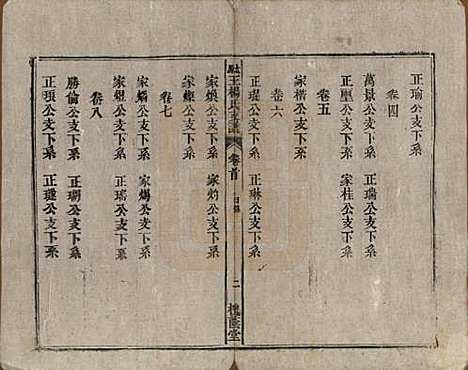 正瑜公支下系
卷四
萬景公支下系 正瑞公支下系
正壐公支下系 家桂公支下系
卷五
家楷公支下系
卷六
正瑅公支下系 正琳公支下系
家煥公支下系 家灼公支下系
王楊氏支譜 卷首 目錄 二 槐蔭堂
家爍公支下系
卷七
家燨公支下系 家煬公支下系
家煜公支下系 正瑞公支下系
卷八
勝倫公支下系 正瑚公支下系
正瓆公支下系 正璉公支下系